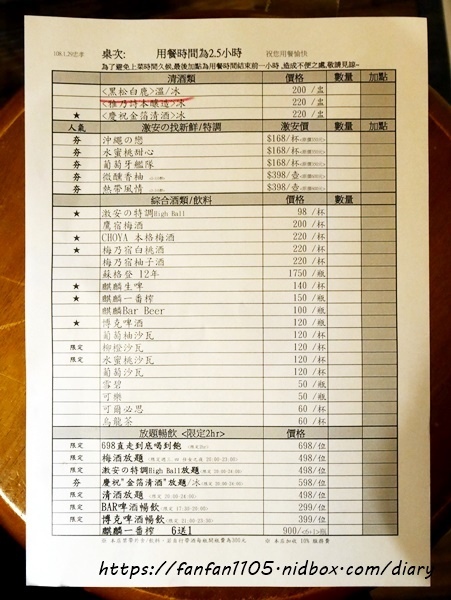 108.1.29忠孝 桌次: 用餐時間為2.5小時 祝您用餐愉快
為了避免上菜時間久候,最後加點為用餐時間結束前一小時,造成不便之處,敬請見諒~
清酒類 價格 數量 加點
<黑松白鹿>溫/冰 200 /盅
<雅乃詩本釀造>冰 220 /盅
★ <慶祝金箔清酒>冰 220 /盅
人氣 激安の找新鮮/特調 激安價 數量 加點
夯 沖繩の戀 $168/杯
夯 水蜜桃甜心 $168/杯
夯 葡萄牙艦隊 $168/杯
夯 微醺香柚 $398/壺
夯 熱帶風情 $398/壺
綜合酒類/飲料 價格 數量 加點
★ 激安の特調High Ball 98 /杯
鷹宿梅酒 200 /杯
★ CHOYA 本格梅酒 220 /杯
★ 梅乃宿白桃酒 220 /杯
梅乃宿柚子酒 220 /杯
蘇格登 12年 1750 /瓶
★ 麒麟生啤 140 /杯
★ 麒麟一番榨 150 /瓶
麒麟Bar Beer 100 /瓶
★ 博克啤酒 120 /瓶
葡萄柚沙瓦 120 /杯
限定 柳橙沙瓦 120 /杯
限定 水蜜桃沙瓦 120 /杯
葡萄沙瓦 120 /杯
雪碧 50 /瓶
可樂 50 /瓶
可爾必思 60 /杯
烏龍茶 60 /杯
放題暢飲 <限定2hr> 價格
限定 698直走到底喝到飽 698/位
限定 梅酒放題 498/位
限定 激安の特調High Ball放題 498/位
夯 慶祝"金箔清酒"放題/冰 598/位
限定 清酒放題 498/位
限定 BAR啤酒暢飲 299/位
限定 博克啤酒暢飲 399/位
麒麟一番榨 6送1 900/<6+1>瓶
※ 本店禁帶外食/飲料,若自行帶酒每瓶開瓶費為300元 ※ 本店加收 10% 服務費
https://fanfan1105.nidbox.com/diary